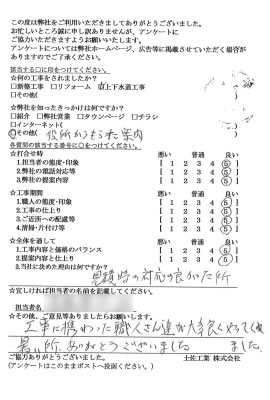 この度は弊社をご利用いただきましてありがとうございました。
お忙しいところ誠に申し訳ありませんが、アンケートに
ご協力いただきますようお願いいたします。
アンケートについては弊社ホームページ、広告等に掲載させていただく場合が
ありますのでご了承ください。
該当する□に印をつけてください。
☆何の工事をされましたか?
□新築工事 □リフォーム 上下水道工事
□その他(
☆弊社を知ったきっかけは何ですか?
□紹介 □弊社営業 □タウンページ □チラシ
□インターネット(
その他( 役所からもらった案内
各質問の該当する番号に○をつけてください。
☆打合せ時 悪い 普通 良い
1.担当者の態度・印象 [ 1 2 3 4 5 ]
2.弊社の電話対応等 [ 1 2 3 4 5 ]
3.弊社の提案内容 [ 1 2 3 4 5 ]
☆工事期間 悪い 普通 良い
1.職人の態度・印象 [ 1 2 3 4 5 ]
2.工事の仕上り [ 1 2 3 4 5 ]
3.ご近所への配慮等 [ 1 2 3 4 5 ]
4.清掃・片付け等 [ 1 2 3 4 5 ]
☆全体を通して 悪い 普通 良い
1.工事内容と価格のバランス [ 1 2 3 4 5 ]
2.提案内容と仕上り [ 1 2 3 4 5 ]
3.当社に決めた理由は何ですか?
見積時の対応の良かった所
☆宜しければ担当者の名前を記載してください。
担当者名
☆その他、ご意見等ありましたらお願いします。
工事に携わった職人さん達が大変良くやってくれ
暑い所、ありがとうございました ました。
ご協力ありがとうございました。 土佐工業 株式会社
(アンケートはこのままポストへ投函ください。)